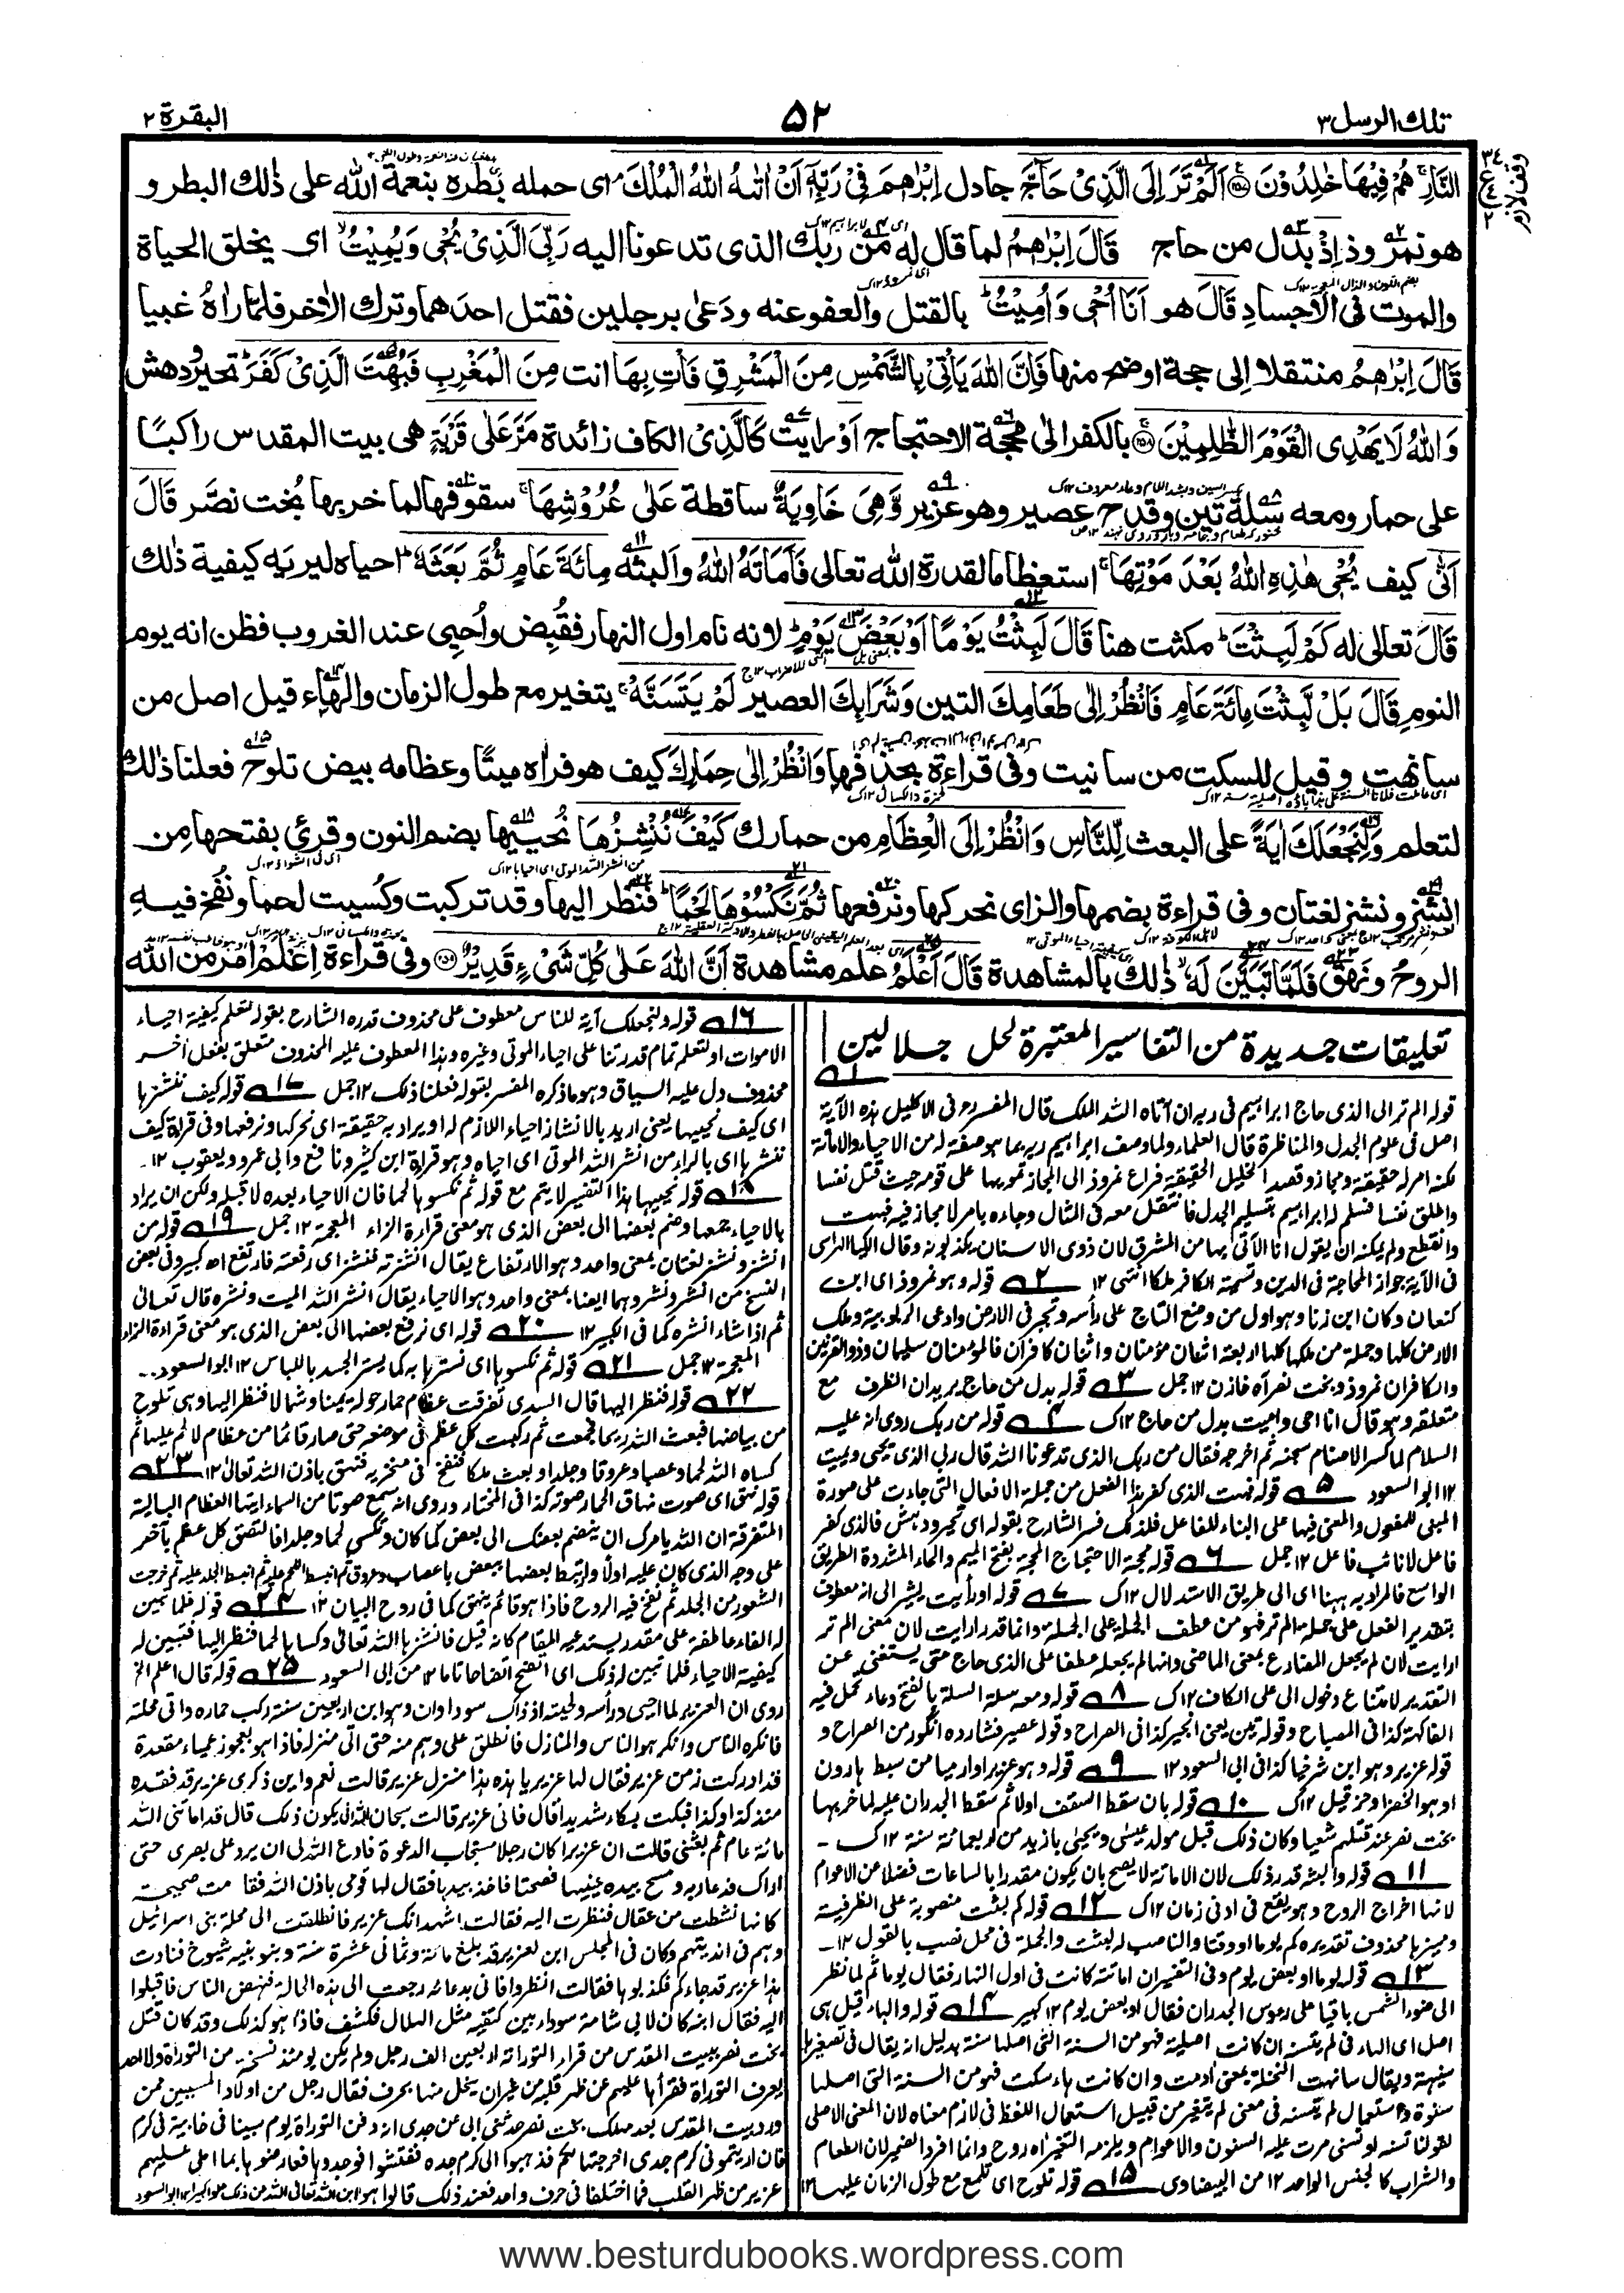 تلك الرسل ٣
٥٢
البقرة ٢
النَّارِ هُمْ فِيْهَا خٰلِدُوْنَ ۝ اَلَمْ تَرَ اِلَى الَّذِىْ حَآجَّ جادل اِبْرٰهٖمَ فِىْ رَبِّهٖٓ اَنْ اٰتٰىهُ اللّٰهُ الْمُلْكَ اى حمله بطره بنعمة الله على ذٰلك البطر و
هو نمروذ اِذْ بدل من حاج قَالَ اِبْرٰهٖمُ لما قال له من ربك الذى تدعونا اليه رَبِّىَ الَّذِىْ يُحْىٖ وَيُمِيْتُ اى يخلق الحياة
والموت فى الاجساد قَالَ هو اَنَا اُحْىٖ وَاُمِيْتُ بالقتل والعفو عنه ودعٰى برجلين فقتل احدهما وترك الاٰخر فلما راٰهُ غبيا
قَالَ اِبْرٰهٖمُ منتقلا اِلى حجة اوضح منها فَاِنَّ اللّٰهَ يَاْتِىْ بِالشَّمْسِ مِنَ الْمَشْرِقِ فَاْتِ بِهَا انت مِنَ الْمَغْرِبِ فَبُهِتَ الَّذِىْ كَفَرَ تحير ودهش
وَاللّٰهُ لَا يَهْدِى الْقَوْمَ الظّٰلِمِيْنَ ۝ بالكفر الٰى محجة الاحتجاج اَوْ رايت كَالَّذِىْ الكاف زائدة مَرَّ عَلٰى قَرْيَةٍ هى بيت المقدس راكبًا
على حمار ومعه سلة تين وقدح عصير وهو عزير وَّهِىَ خَاوِيَةٌ ساقطة عَلٰى عُرُوْشِهَا سقوفها لما خربها بُخت نصَّر قَالَ
اَنّٰى كيف يُحْىٖ هٰذِهِ اللّٰهُ بَعْدَ مَوْتِهَا استعظاما لقدرة الله تعالى فَاَمَاتَهُ اللّٰهُ والبثه مِائَةَ عَامٍ ثُمَّ بَعَثَهٗ احياه ليريه كيفية ذٰلك
قَالَ تعالٰى له كَمْ لَبِثْتَ مكثت هنا قَالَ لَبِثْتُ يَوْمًا اَوْ بَعْضَ يَوْمٍ لانه نام اول النهار فقُبِض واُحيِى عند الغروب فظن انه يوم
النوم قَالَ بَلْ لَّبِثْتَ مِائَةَ عَامٍ فَانْظُرْ اِلٰى طَعَامِكَ التين وَشَرَابِكَ العصير لَمْ يَتَسَنَّهْ يتغير مع طول الزمان والهاء قيل اصل من
سانهت وقيل للسكت من سانيت وفى قراءة بحذفها وَانْظُرْ اِلٰى حِمَارِكَ كيف هو فراٰه ميتًا وعظامه بيض تلوح فعلنا ذٰلك
لتعلم وَلِنَجْعَلَكَ اٰيَةً على البعث لِّلنَّاسِ وَانْظُرْ اِلَى الْعِظَامِ من حمارك كَيْفَ نُنْشِزُهَا نُحييها بضم النون وقرئ بفتحها من
انشز ونشز لغتان وفى قراءة بضمها والزاى نحركها ونرفعها ثُمَّ نَكْسُوْهَا لَحْمًا فنظر اليها وقد تركبت وكُسيت لحما ونُفخ فيه
الروحُ ونهق فَلَمَّا تَبَيَّنَ لَهٗ ذٰلك بالمشاهدة قَالَ اَعْلَمُ علم مشاهدة اَنَّ اللّٰهَ عَلٰى كُلِّ شَىْءٍ قَدِيْرٌ ۝ وفى قراءة اِعْلَمْ امر من الله
تعليقات جديدة من التفاسير المعتبرة لحل جلالين
قوله الم تر الى الذى حاج ابراهيم فى ربه ان آتاه الله الملك قال المفسر فى الاكليل هذه الآية
اصل فى علوم الجدل والمناظرة قال العلماء ولما وصف ابراهيم ربه بما هو صفة له من الاحياء والاماتة
لكنه امر له حقيقة ومجاز وقصد الخليل الحقيقة فزاع نمروذ الى المجاز تمويها على قومه حيث قتل نفسا
واطلق نفسا فسلم له ابراهيم تسليم الجدل فانتقل معه فى المثال وجاءه بامر لا مجاز فيه فبهت
وانقطع ولم يمكنه ان يقول انا الآتى بها من المشرق لان ذوى الاسنان يكذبونه وقال الكيا الهراسى
فى الآية جواز المحاجة فى الدين وتسمية الكافر ملكا انتهى ١٢ ٢ قوله وهو نمروذ اى ابن
كنعان وكان ابن زنا وهو اول من وضع التاج على رأسه وتجبر فى الارض وادعى الربوبية وملك
الارض كلها وجملة من ملكها كلها اربعة اثنان مؤمنان واثنان كافران فالمؤمنان سليمان وذو القرنين
والكافران نمروذ وبخت نصر اھ خازن ١٢ جمل ٣ قوله بدل من حاج يريد ان الظرف مع
متعلقه وهو قال انا احى واميت بدل من حاج ١٢ ك ٤ قوله من ربك روى انه عليه
السلام لما كسر الاصنام سجنه ثم اخرجه فقال من ربك الذى تدعونا الله قال ربى الذى يحيى ويميت
١٢ ابو السعود ٥ قوله فبهت الذى كفر هذا الفعل من جملة الافعال التى جاءت على صورة
المبنى للمفعول والمعنى فيها على البناء للفاعل فلذلك فسر الشارح بقوله اى تحير ودهش فالذى كفر
فاعل لا نائب فاعل ١٢ جمل ٦ قوله محجة الاحتجاج المحجة بفتح الميم والحاء المشددة الطريق
الواسع فالمراد به ههنا اى الى طريق الاستدلال ١٢ ك ٧ قوله او رأيت يشير الى انه معطوف
بتقدير الفعل على جملة الم تر فهو من عطف الجملة على الجملة وانما قدر ارايت لان معنى الم تر
ارايت لان لم يجعل المضارع بمعنى الماضى وانما لم يجعله عطفا على الذى حاج حتى يستغنى عن
التقدير لامتناع دخول الى على الكاف ١٢ ك ٨ قوله ومعه سلة السلة بالفتح وعاء تحمل فيه
الفاكهة كذا فى المصباح وقوله تين يعنى انجير كذا فى الصراح وقوله عصير فشارده انگور من الصراح و
قوله عزير وهو ابن شرخيا كذا فى ابى السعود ١٢ ٩ قوله وهو عزير او ارميا من سبط هارون
او هو الخضر او حزقيل ١٢ ك ١٠ قوله بان سقط السقف اولا ثم سقط الجدران عليه لما خربها
بخت نصر عند قتلهم شعيا وكان ذلك قبل مولد عيسى ويحيى بازيد من اربعمائة سنة ١٢ ك -
١١ قوله والبثه قدر ذلك لان الاماتة لا يصح بان يكون مقدرا بالساعات فضلا عن الاعوام
لانها اخراج الروح وهو يقع فى ادنى زمان ١٢ ك ١٢ قوله كم لبثت منصوبة على الظرفية
ومميزها محذوف تقديره كم يوما او وقتا والناصب له لبثت والجملة فى محل نصب بالقول ١٢ -
١٣ قوله يوما او بعض يوم وفى التفسير ان اماتته كانت فى اول النهار فقال يوما ثم لما نظر
الى ضوء الشمس باقيا على رءوس الجدران فقال او بعض يوم ١٢ كبير ١٤ قوله والهاء قيل هى
اصل اى الهاء فى لم يتسنه ان كانت اصلية فهو من السنة التى اصلها سنهة بدليل انه يقال فى تصغيرها
سنيهة ويقال سانهت النخلة بمعنى اومت وان كانت هاء سكت فهو من السنة التى اصلها
سنوة واستعمال لم يتسنه فى معنى لم يتغير من قبيل استعمال اللفظ فى لازم معناه لان المعنى الاصلى
لقولنا تسنه او تسنى مرت عليه السنون والاعوام ويلزمه التغير اھ روح وانما افرد الضمير لان الطعام
والشراب كالجنس الواحد ١٢ من البيضاوى ١٥ قوله تلوح اى تلمع مع طول الزمان عليها ١٢
١٦ قوله ولنجعلك آية للناس معطوف على محذوف قدره الشارح بقوله لتعلم كيفية احياء
الاموات او لتعلم تمام قدرتنا على احياء الموتى وغيره وهذا المعطوف عليه المحذوف متعلق بفعل آخر
محذوف دل عليه السياق وهو ما ذكره المفسر بقوله فعلنا ذلك ١٢ جمل ١٧ قوله كيف ننشزها
اى كيف نحييها يعنى اريد بالانشاز احياء اللازم له او يراد به حقيقته اى نحركها ونرفعها وفى قراءة كيف
ننشرها اى بالراء من انشر الله الموتى اى احياه وهو قراءة ابن كثير ونافع وابى عمرو ويعقوب ١٢ -
١٨ قوله نحييها هذا التفسير لا يتم مع قوله ثم نكسوها لحما فان الاحياء بعده لا قبله ولكن ان يراد
بالاحياء جمعها وضم بعضها الى بعض الذى هو معنى قراءة الزاء المعجمة ١٢ جمل ١٩ قوله من
انشز ونشز لغتان بمعنى واحد وهو الارتفاع يقال انشزته فنشز اى رفعته فارتفع اھ كبير وفى بعض
النسخ من انشر ونشر وهما ايضا بمعنى واحد وهو الاحياء يقال انشر الله الميت ونشره قال تعالى
ثم اذا شاء انشره كما فى الكبير ١٢ ٢٠ قوله اى نرفع بعضها الى بعض الذى هو معنى قراءة الزاء
المعجمة ١٢ جمل ٢١ قوله ثم نكسوها اى نسترها به كما يستر الجسد باللباس ١٢ ابو السعود
٢٢ قوله فنظر اليها قال السدى تفرقت عظام حماره حوله يمينا وشمالا فنظر اليها وهى تلوح
من بياضها فبعث الله ريحا فجمعت ثم ركبت كل عظم فى موضعه حتى صار قائما من عظام لا لحم عليها ثم
كساه الله لحما وعصبا وعروقا وجلدا وبعث ملكا فنفخ فى منخريه فنهق باذن الله تعالى ١٢ ٢٣
قوله نهق اى صوت نهاق الحمار صوته كذا فى المختار وروى انه سمع صوتا من السماء ايتها العظام البالية
المتفرقة ان الله يامرك ان ينضم بعضك الى بعض كما كان وتكسى لحما وجلدا فالتصق كل عظم بآخر
على وجه الذى كان عليه اولا وارتبط بعضها ببعض باعصاب وعروق ثم انبسط اللحم عليه ثم انبسط الجلد عليه ثم خرجت
الشعور من الجلد ثم نفخ فيه الروح فاذا هو قائم ينهق كما فى روح البيان ١٢ ٢٤ قوله فلما تبين
له الفاء عاطفة على مقدر يستدعيه المقام كانه قيل فانشزها الله تعالى وكساها لحما فنظر اليها فتبين له
كيفية الاحياء فلما تبين له ذلك اى اتضح اتضاحا تاما ١٢ من ابى السعود ٢٥ قوله قال اعلم الخ
روى ان العزير لما احيى ورأسه ولحيته اذ ذاك سوداوان وهو ابن اربعين سنة ركب حماره واتى محلته
فانكره الناس وانكر هو الناس والمنازل فانطلق على وهم منه حتى اتى منزله فاذا هو بعجوز عمياء مقعدة
قد ادركت زمن عزير فقال لها عزير يا هذه هذا منزل عزير قالت نعم واين ذكرى عزير قد فقده
منذ كذا وكذا فبكت بكاء شديدا قال فانى عزير قالت سبحان الله انى يكون ذلك قال قد اماتنى الله
مائة عام ثم بعثنى قالت ان عزيرا كان رجلا مستجاب الدعوة فادع الله لى ان يرد على بصرى حتى
اراك فدعا ربه ومسح بيده عينيها فصحتا فاخذ بيدها فقال لها قومى باذن الله فقامت صحيحة
كانها نشطت من عقال فنظرت اليه فقالت اشهد انك عزير فانطلقت الى محلة بنى اسرائيل
وهم فى انديتهم وكان فى المجلس ابن لعزير قد بلغ مائة وثمانى عشرة سنة وبنو بنيه شيوخ فنادت
هذا عزير قد جاءكم فكذبوها فقالت انظروا فانى بدعائه رجعت الى هذه الحالة فنهض الناس فاقبلوا
اليه فقال ابنه كان لابى شامة سوداء بين كتفيه مثل الهلال فكشف فاذا هو كذلك وقد كان قتل
بخت نصر ببيت المقدس من قراء التوراة اربعين الف رجل ولم يكن يومئذ نسخة من التوراة ولا احد
يعرف التوراة فقرأها عليهم عن ظهر قلبه من غير ان يخل منها بحرف فقال رجل من اولاد المسبيين ممن
ورد بيت المقدس بعد مهلك بخت نصر حدثنى ابى عن جدى انه دفن التوراة يوم سبينا فى خابية فى كرم
فان اريتمونى كرم جدى اخرجتها لكم فذهبوا الى كرم جده ففتشوا فوجدوها فعارضوها بما املى عليهم
عزير من ظهر القلب فما اختلفا فى حرف واحد فعند ذلك قالوا هو ابن الله تعالى الله عن ذلك علوا كبيرا ١٢ ابو السعود
www.besturdubooks.wordpress.com